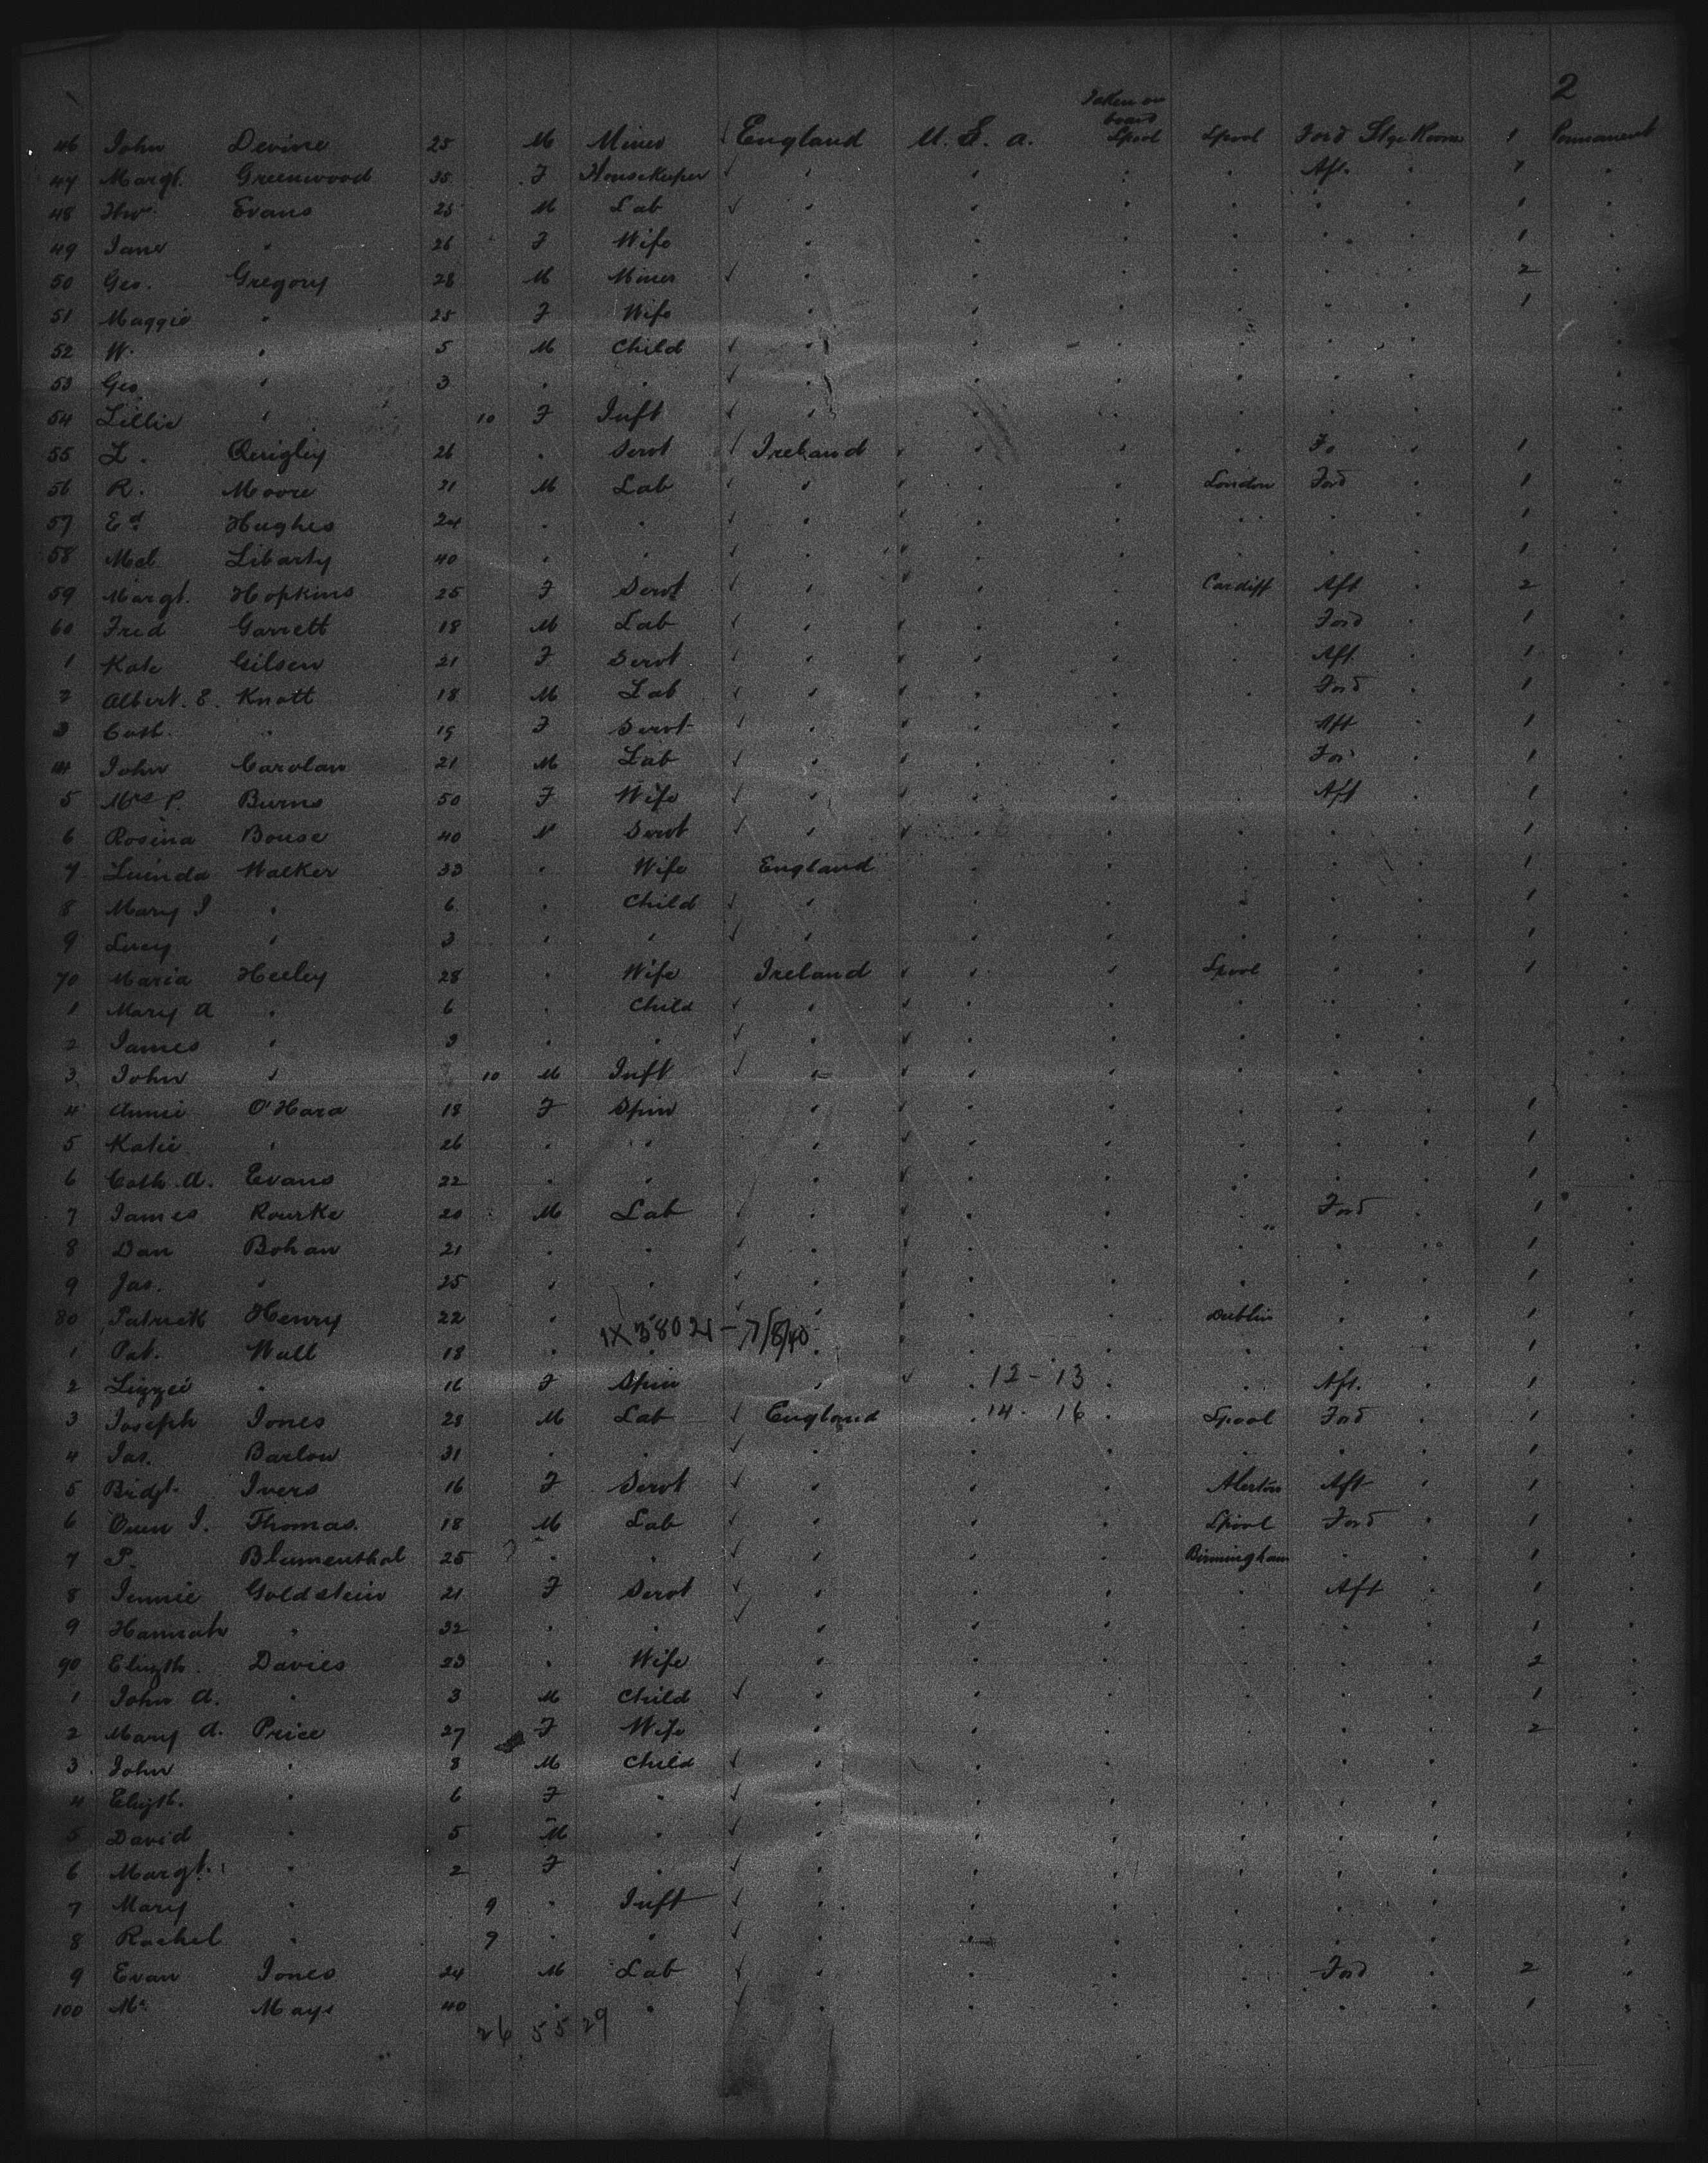 2
Taken on
board
46 John Devine 25 M Miner England U.S.a. Lpool Lpool Ford Stge Room 1 Permanent
47 Margt. Greenwood 35 F Housekeeper " " " " Aft. " 1 "
48 Evans 25 M Lab " " " " " " 1 "
49 Jane " 26 F Wife " " " " " " 1 "
50 Geo. Gregory 28 M Miner " " " " " " 2 "
51 Maggie " 25 F Wife " " " " " " 1 "
52 W. " 5 M Child " " " " " " "
53 Geo " 3 " " " " " " " " "
54 Lillie " 10 F Inft " " " " " " "
55 L. Quigley 26 " Servt Ireland " " " " 1 "
56 R. Moore 21 M Lab " " " London Ford " 1 "
57 Ed Hughes 24 " " " " " " " " 1 "
58 Mel Libarty 40 " " " " " " " " 1 "
59 Margt. Hopkins 25 F Servt " " " Cardiff Aft " 2 "
60 Fred Garrett 18 M Lab " " " " Ford " 1 "
1 Kate Gilsen 21 F Servt " " " " Aft " 1 "
2 Albert. E. Knott 18 M Lab " " " " Ford " 1 "
3 Cath. " 19 F Servt " " " " Aft " 1 "
4 John Carolan 21 M Lab " " " " For " 1 "
5 Mrs P. Burns 50 F Wife " " " " Aft " 1 "
6 Rosina Bouse 40 " Servt " " " " " " 1 "
7 Luinda Walker 33 " Wife England " " " " " 1 "
8 Mary J " 6 " Child " " " " " " 1 "
9 Lucy " 3 " " " " " " " " 1 "
70 Maria Heeley 28 " Wife Ireland " " Lpool " " 1 "
1 Mary A " 6 " Child " " " " " " "
2 James " 3 " " " " " " " " "
3 John " 10 M Inft " " " " " " "
4 Annie O'Hara 18 F Spin " " " " " " 1 "
5 Katie " 26 " " " " " " " " 1 "
6 Cath. A. Evans 22 " " " " " " " " 1 "
7 James Rourke 20 M Lab " " " " Ford " 1 "
8 Dan Bohan 21 " " " " " " " " 1 "
9 Jas. " 25 " " " " " " " " 1 "
80 Patrick Henry 22 " " " " Dublin " " 1 "
1X 38021 - 7/8/40
1 Pat. Wall 18 " " " " " " " " 1 "
2 Lizzei " 16 F Spin " " 12 - 13 " " Aft. " 1 "
3 Joseph Jones 28 M Lab England " 14 - 16 " Lpool Ford " 1 "
4 Jas. Barlow 31 " " " " " " " " 1 "
5 Bridgt. Ivers 16 F Servt " " " Aft " 1 "
6 Owen J. Thomas. 18 M Lab " " " Lpool Ford " 1 "
7 P. Blumenthal 25 " " " " " Birmingham " " 1 "
8 Jennie Goldstein 21 F Servt " " " " Aft " 1 "
9 Hannah " 32 " " " " " " " " 1 "
90 Elizth. Davies 23 " Wife " " " " " " 2 "
1 John A. " 3 M Child " " " " " " 1 "
2 Mary A. Price 27 F Wife " " " " " " 2 "
3 John " 8 M Child " " " " " " "
4 Elizth. " 6 F " " " " " " " "
5 David " 5 M " " " " " " " "
6 Margt. " 2 F " " " " " " " "
7 Mary " 9 " Inft " " " " " " "
8 Rachel " 9 " " " " " " " " "
9 Evan Jones 24 M Lab " " " " Ford " 2 "
100 Mr Mays 40 " " " " " " " " 1 "
26 55 29